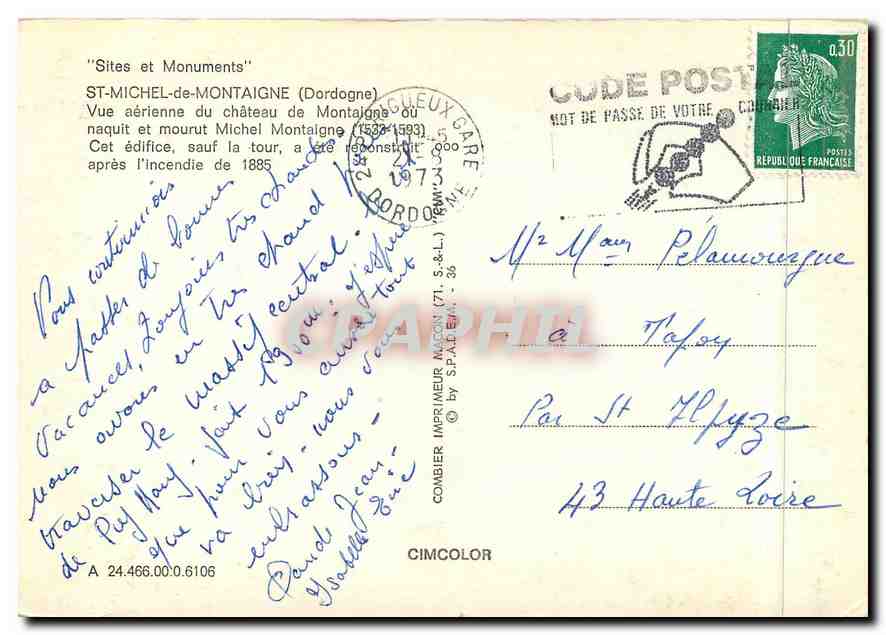 "Sites et Monuments"
ST-MICHEL-de-MONTAIGNE (Dordogne)
Vue aérienne du château de Montaigne où
naquit et mourut Michel Montaigne (1533-1593)
Cet édifice, sauf la tour, a été reconstruit
après l'incendie de 1885
24 PERIGUEUX GARE
1973
DORDOGNE
CODE POSTAL
MOT DE PASSE DE VOTRE COURRIER
0,30
POSTES
REPUBLIQUE FRANÇAISE
Nous continuons
a passer de bonnes
vacances, toujours très chaudes
nous avons eu très chaud pour
traverser le massif central. le col
de Puy Mary. fait 1500m; j'espère
que pour vous aussi tout
va bien - nous vous
embrassons -
Claude Jean-
Isabelle Eric
COMBIER IMPRIMEUR MACON (71. S.-&-L.) "CIM"
© by S.P.A.D.E.M. - 36
CIMCOLOR
A 24.466.00.0.6106
Mr Mme Pélamourgue
à Tapon
Par St Ilpyze
43 Haute Loire
CPAPHIL